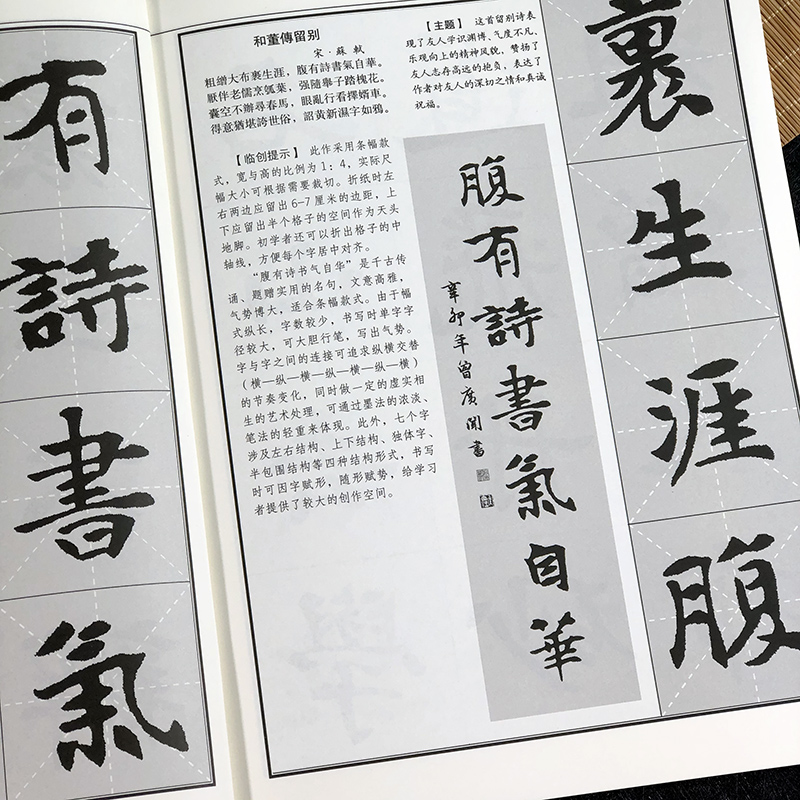 和董傳留別
宋·蘇軾
粗繒大布裹生涯，腹有詩書氣自華。
厭伴老儒烹瓠葉，强隨舉子踏槐花。
囊空不辦尋春馬，眼亂行看擇婿車。
得意猶堪誇世俗，詔黃新濕字如鴉。
【主题】 这首留别诗表
现了友人学识渊博、气度不凡、
乐观向上的精神风貌，赞扬了
友人志存高远的抱负，表达了
作者对友人的深切之情和真诚
祝福。
【临创提示】 此作采用条幅款
式，宽与高的比例为1：4，实际尺
幅大小可根据需要裁切。折纸时左
右两边应留出6-7厘米的边距，上
下应留出半个格子的空间作为天头
地脚。初学者还可以折出格子的中
轴线，方便每个字居中对齐。
“腹有诗书气自华”是千古传
诵、题赠实用的名句，文意高雅，
气势博大，适合条幅款式。由于幅
式纵长，字数较少，书写时单字字
径较大，可大胆行笔，写出气势。
字与字之间的连接可追求纵横交替
（横—纵—横—纵—横—纵—横）
的节奏变化，同时做一定的虚实相
生的艺术处理，可通过墨法的浓淡、
笔法的轻重来体现。此外，七个字
涉及左右结构、上下结构、独体字、
半包围结构等四种结构形式，书写
时可因字赋形，随形赋势，给学习
者提供了较大的创作空间。
腹有詩書氣自華
辛卯年曾廣閑書
裹生涯腹
有詩書氣